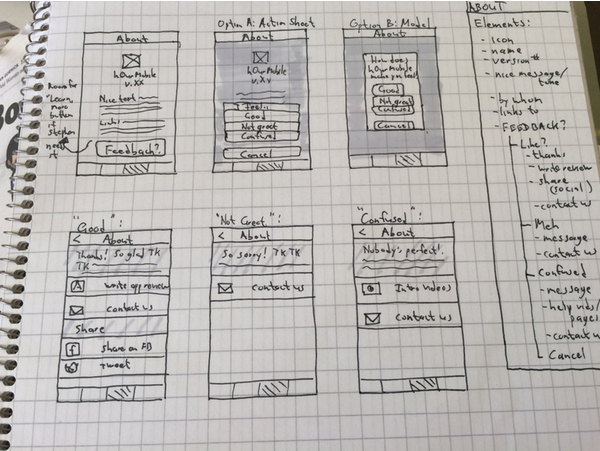 About
hOurMobile
v.Xx
Nice text
Links
Feedback?
Room for
"Learn
more
button
if
Stephen
needs
it
Option A: Action Sheet
About
hOurMobile
v.Xx
I feel...
Good
Not great
Confused
Cancel
Option B: Model
About
How does
hOurMobile
make you feel?
Good
Not great
Confused
Cancel
"Good":
< About
Thanks! So glad TK
TK
write app review
contact us
Share
f share on FB
Tweet
"Not Great":
< About
So sorry! TK TK
contact us
"Confused":
< About
Nobody's perfect!
Intro videos
contact us
ABOUT
Elements:
- Icon
- name
- version #
- nice message/
tune
- by whom
- links to
- FEEDBACK?
Like?
- thanks
- write review
- share
(social)
- contact us
Meh
- message
- contact us
Confused
- message
- help vids/
pages
- contact us
Cancel